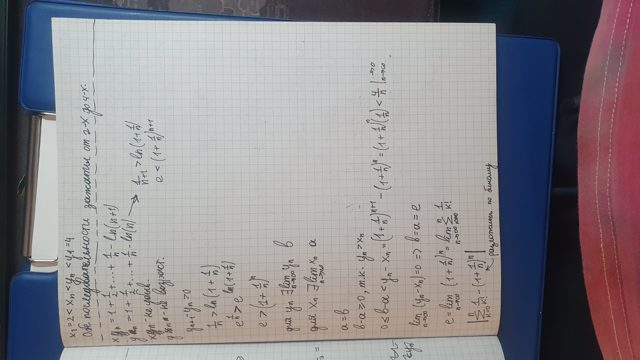 x₁=2<xₙ<yₙ<y₁=4
Обе последовательности зажаты от 2-х до 4-х.
xₙ=1+1/2+...+1/n-ln(n+1)
yₙ=1+1/2+...+1/n-ln(n) → 1/(n+1)>ln(1+1/n)
xₙ не убыв.
yₙ - не возраст. e<(1+1/n)ⁿ⁺¹
yₙ₊₁ yₙ>0
1/n>ln(1+1/n)
e^(1/n)>e^(ln(1+1/n))
e>(1+1/n)ⁿ
для yₙ ∃ lim n→∞ yₙ b
для xₙ ∃ lim n→∞ xₙ a
a=b
b-a≥0, т.к. yₙ>xₙ
0≤b-a<yₙ-xₙ=(1+1/n)ⁿ⁺¹-(1+1/n)ⁿ=(1+1/n)ⁿ(1/n)<4/n |→0 n→∞.
lim n→∞ (yₙ-xₙ)=0 => b=a=e
e=lim n→∞ (1+1/n)ⁿ=lim n→∞ Σ 1/k!
|Σ 1/k!-(1+1/n)ⁿ|
разложить по биному